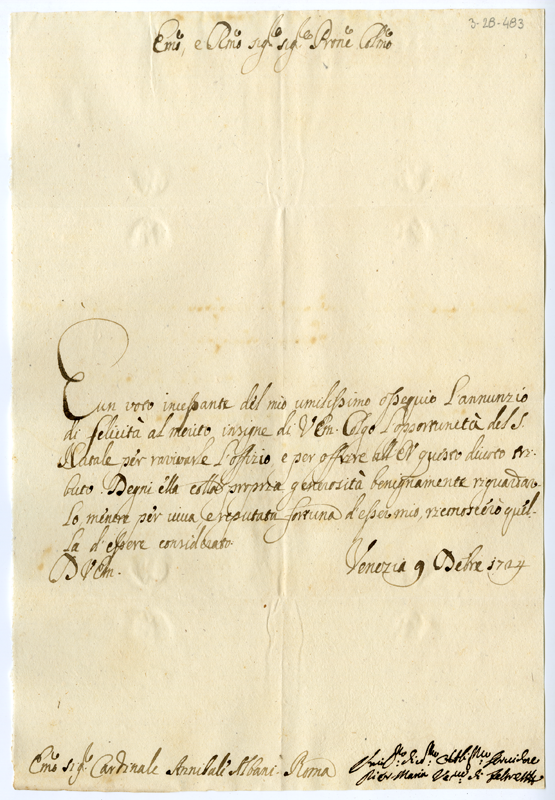 3-28-483
Emo, e Rmo sigr sigr Prone Colmo
È un voto incessante del mio umilissimo ossequio l'annunzio
di felicità al merito insigne di VEm. Colgo l'opportunità del S.
Natale per ravivarle l'offizio, e per offerire all'EV questo divoto tri-
buto. Degni ella colla propria generosità benignamente riguardar-
lo, mentre per viva, e reputata fortuna d'esso mio, riconoscerò quel-
la d'essere considerato
D VEm.
Venezia 9 Debre 1724
Emo sigr Cardinale Annibale Albani Roma
Servidore
Pier Maria Vesco di Feltre